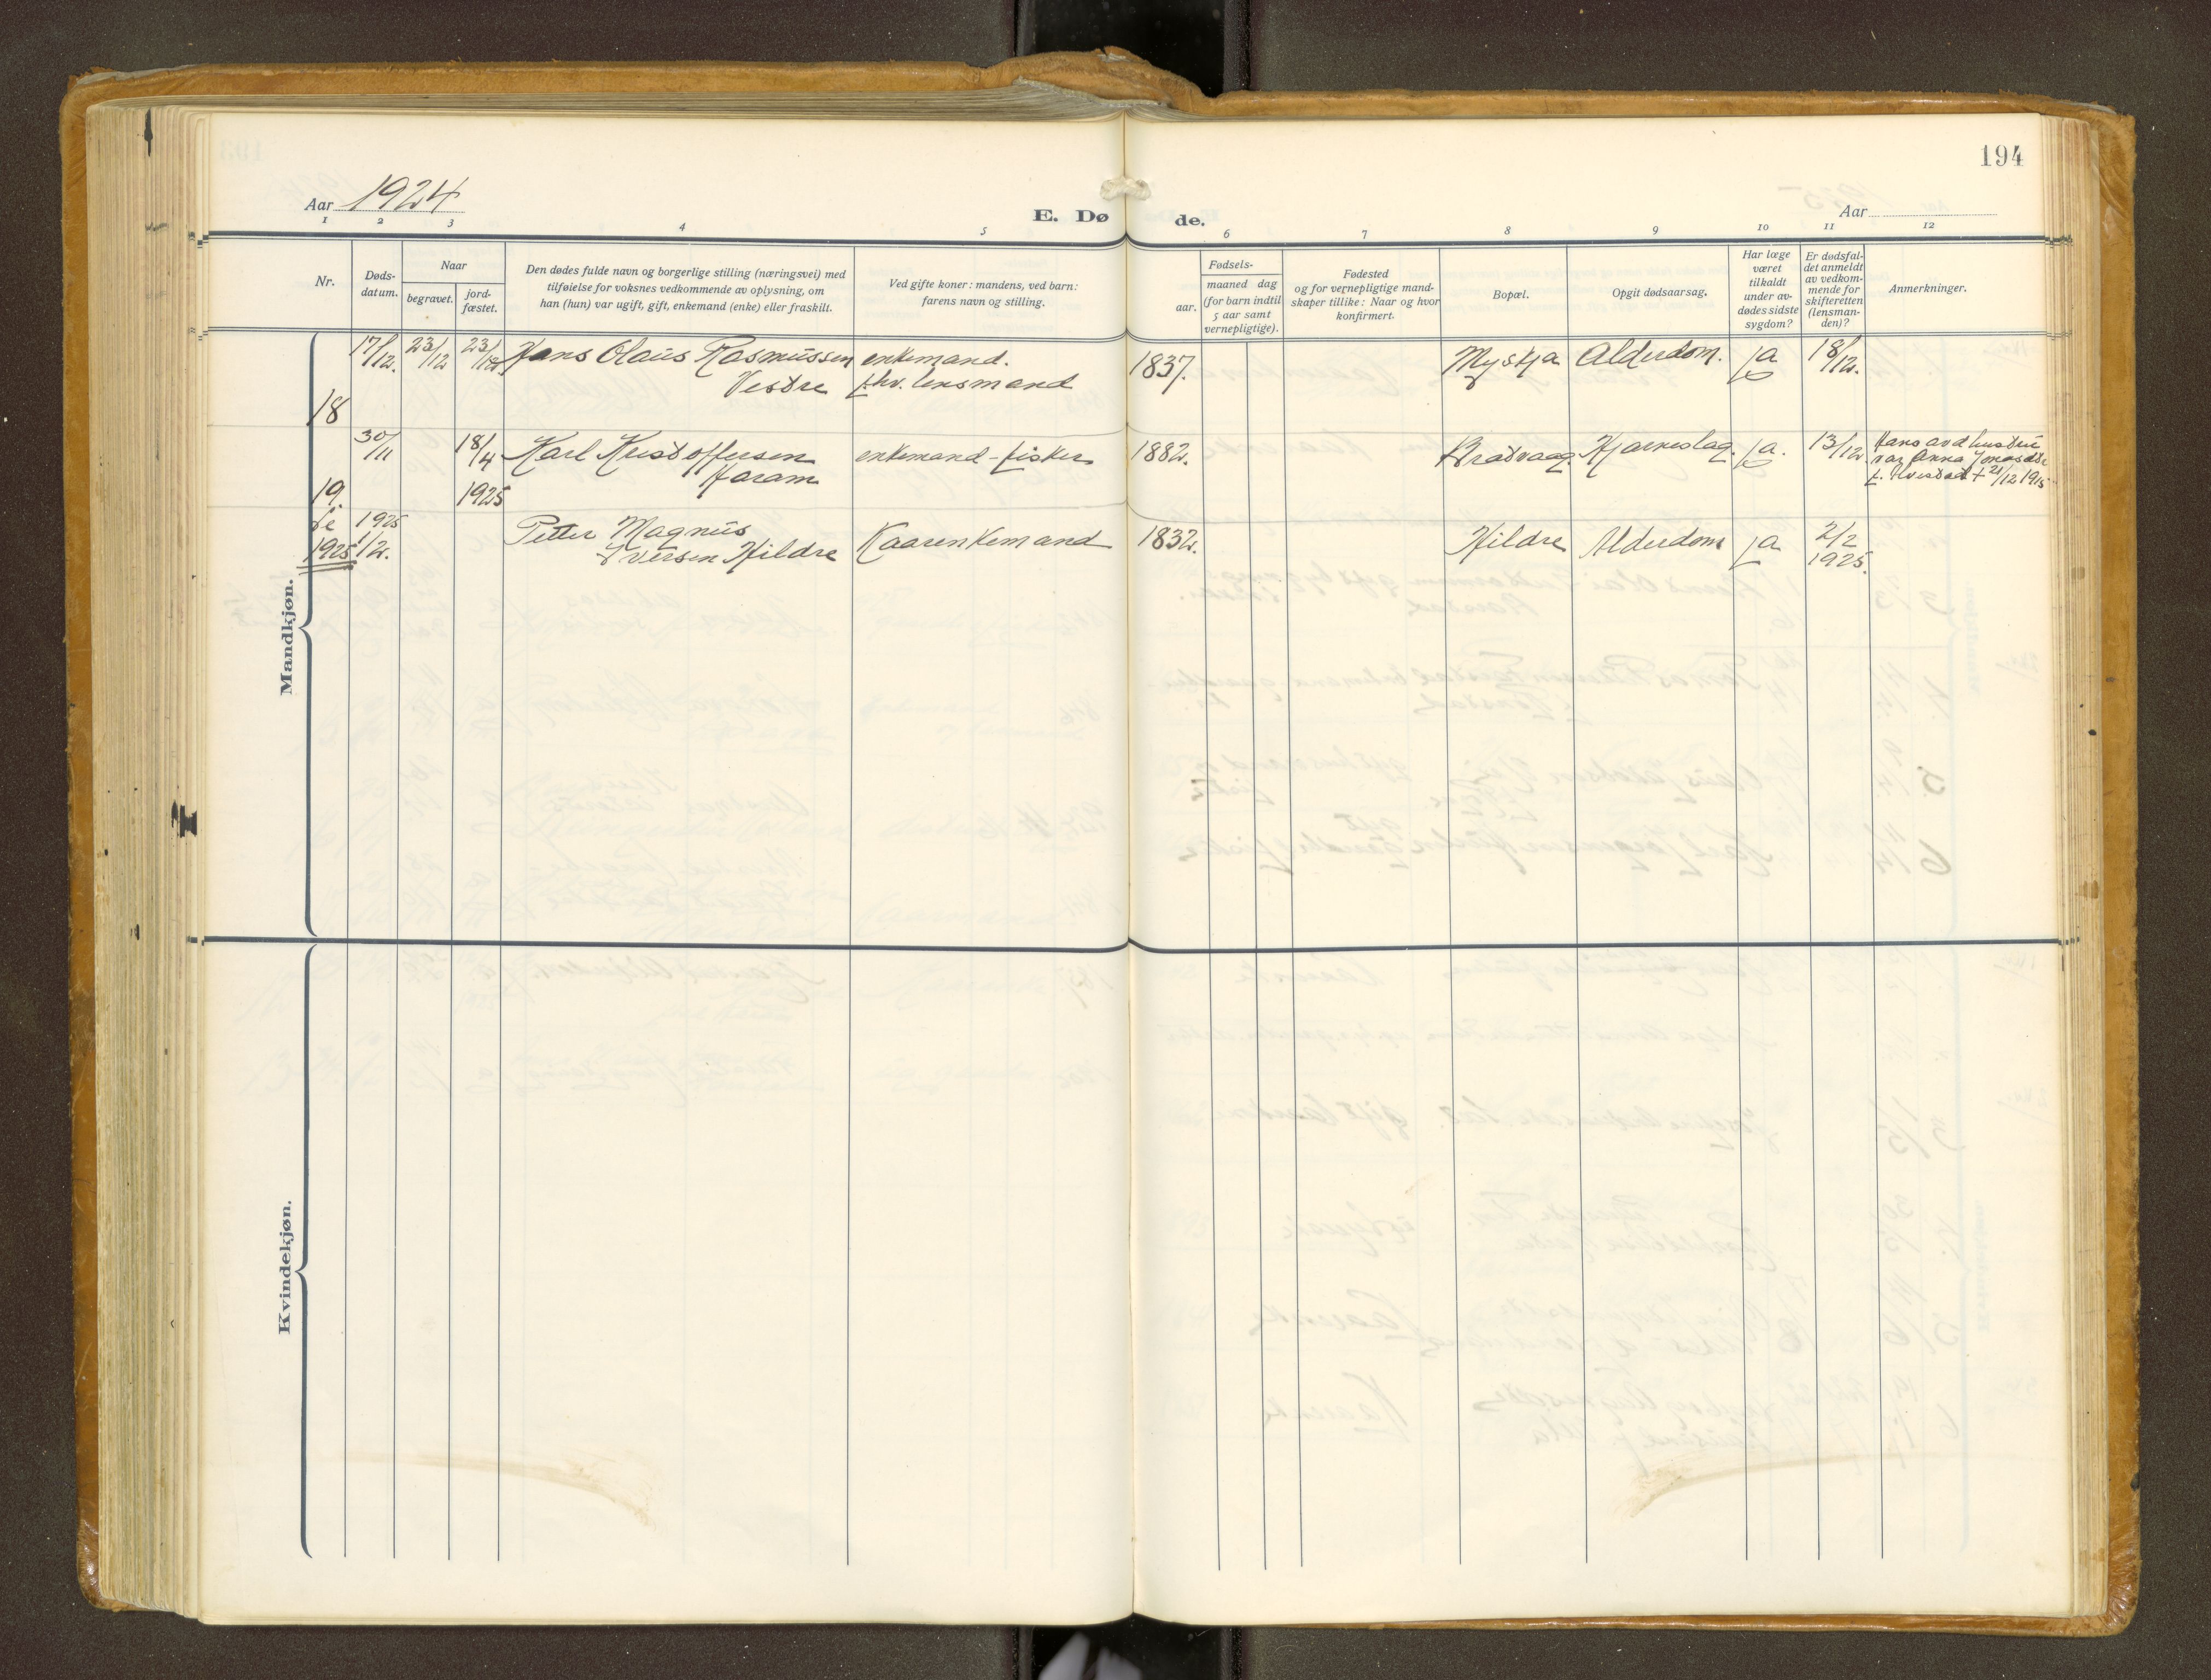 194
Aar 1924
E. Døde.
Aar
1 2 3 4 5 6 7 8 9 10 11 12
Nr.
Døds-
datum.
Naar
begravet.
jord-
fæstet.
Den dødes fulde navn og borgerlige stilling (næringsvei) med
tilføielse for voksnes vedkommende av oplysning, om
han (hun) var ugift, gift, enkemand (enke) eller fraskilt.
Ved gifte koner: mandens, ved barn:
farens navn og stilling.
Fødsels-
aar.
maaned dag
(for barn indtil
5 aar samt
vernepligtige).
Fødested
og for vernepligtige mand-
skaper tillike: Naar og hvor
konfirmert.
Bopæl.
Opgit dødsaarsag.
Har læge
været
tilkaldt
under av-
dødes sidste
sygdom?
Er dødsfal-
det anmeldt
av vedkom-
mende for
skifteretten
(lensman-
den)?
Anmerkninger.
Mandkjøn.
18 17/12. 23/12 23/12. Hans Olaus Rasmussen enkemand. 1837. Myskja Alderdom. ja 18/12.
Vestre f.hv. lensmand
19. 30/11 18/4 Karl Kristoffersen enkemand - fisker 1882. Bradvaag. Hjerneslag. ja. 13/12. Hans avd hustru
Haram var Anna Jonasdtr
1925 † 21/12 1915
1925 1925 1/2. Petter Magnus Kaarenkemand 1832. Hildre Alderdom ja 2/2
Iversen Hildre 1925.
Kvindekjøn.